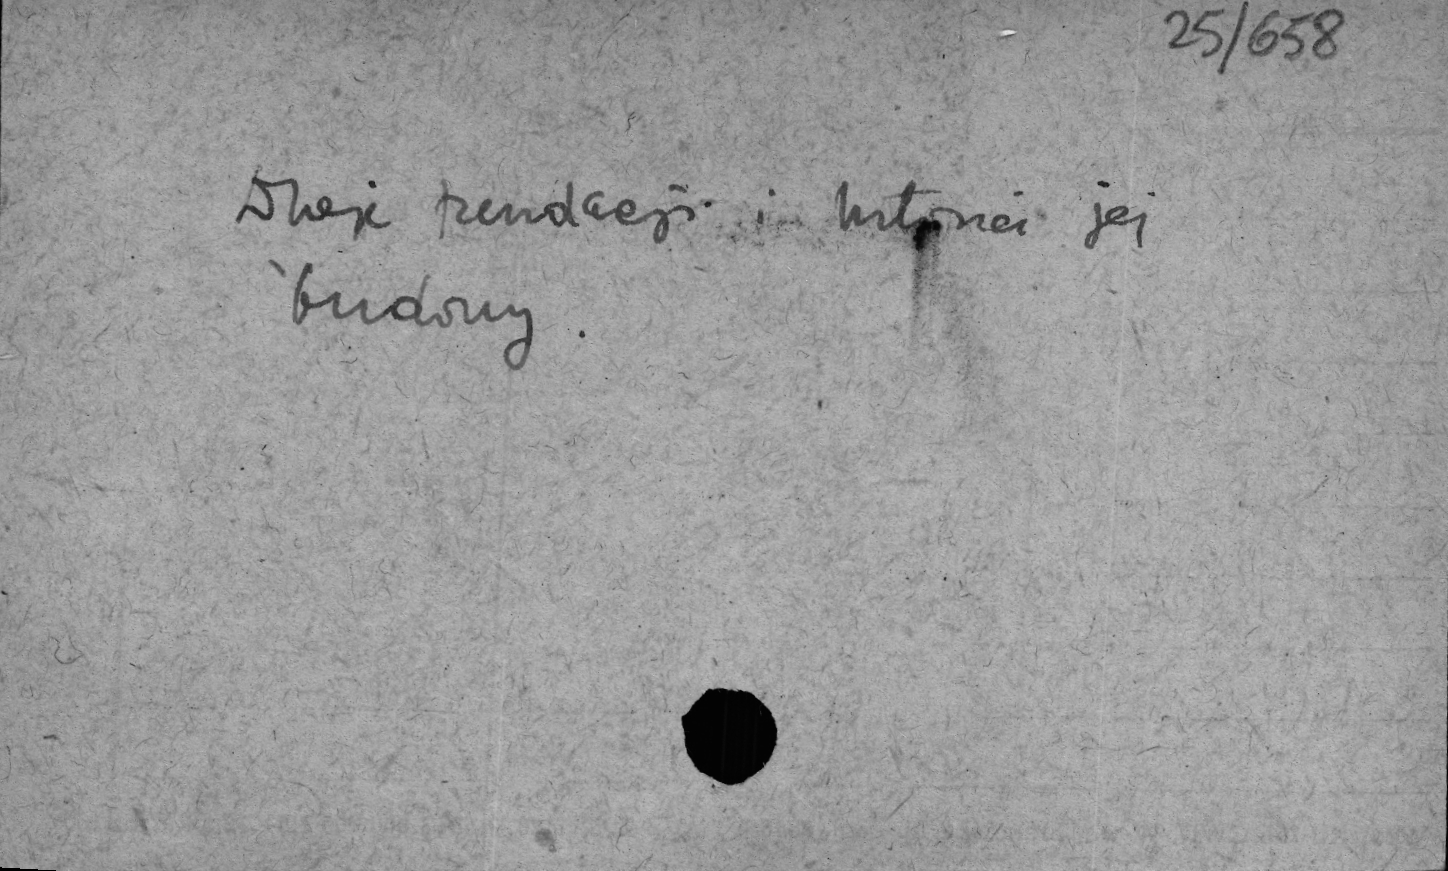 25/658
Dzieje fundacji i historia jej
budowy.